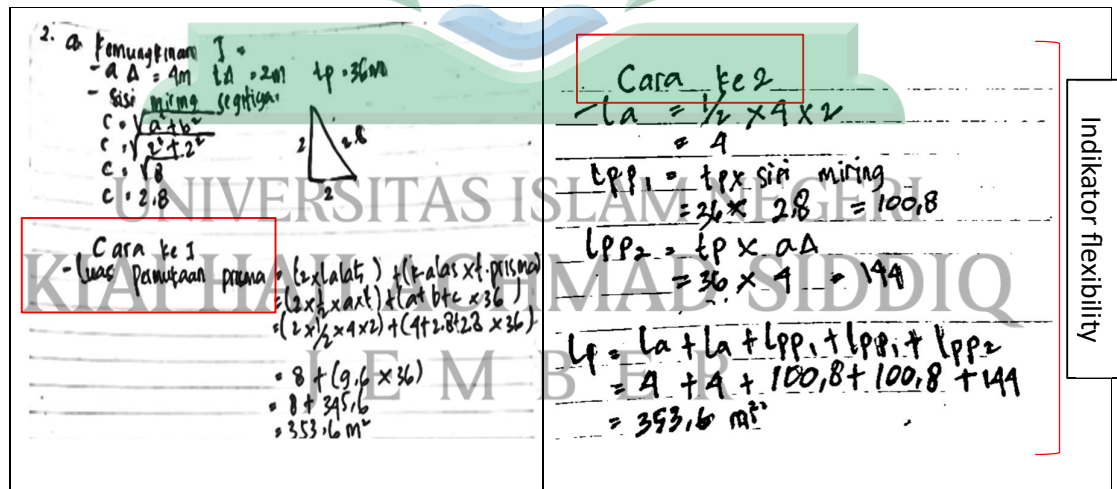 2. a. Kemungkinan I =
- a Δ = 4m tΔ = 2m tp = 36m
- Sisi miring segitiga
c = √a²+b²
c = √2²+2²
c = √8
c = 2.8
2
2.8
2
Cara ke I
- Luas permukaan prisma = (2 x l alas) + (k alas x t. prisma)
= (2 x ½ x a x t) + (a+b+c x 36)
= (2 x ½ x 4 x 2) + (4+2.8+2.8 x 36)
= 8 + (9,6 x 36)
= 8 + 345,6
= 353,6 m²
Cara ke 2
- La = ½ x 4 x 2
= 4
Lpp₁ = tp x sisi miring
= 36 x 2,8 = 100,8
Lpp₂ = tp x aΔ
= 36 x 4 = 144
Lp = La + La + Lpp₁ + Lpp₁ + Lpp₂
= 4 + 4 + 100,8 + 100,8 + 144
= 353,6 m²
Indikator flexibility
UNIVERSITAS ISLAM NEGERI
KIAI HAJI ACHMAD SIDDIQ
J E M B E R